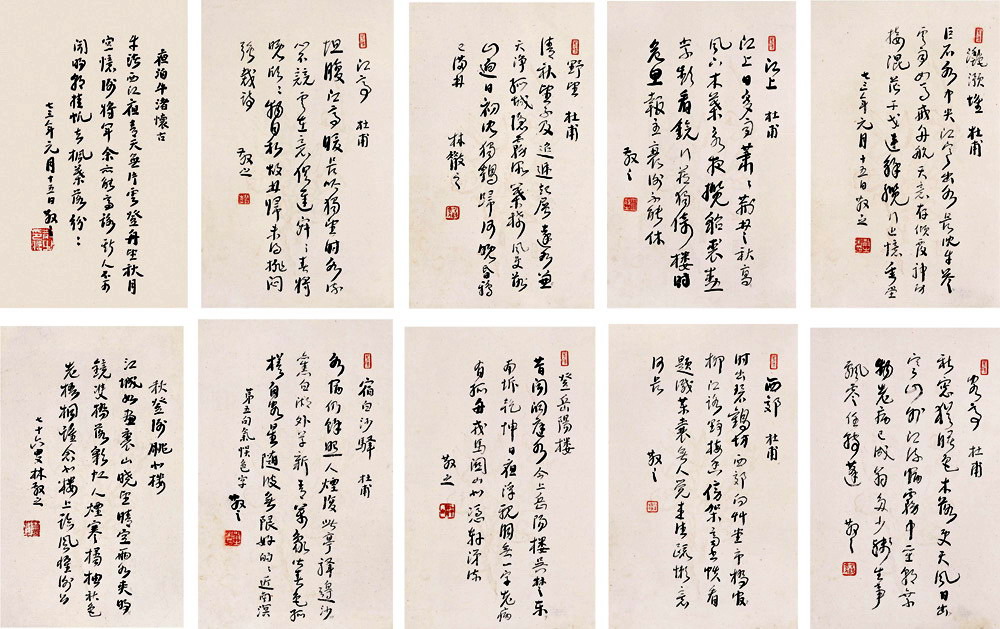 灩澦堆 杜甫
巨石水中央江寒出水長沈牛答
雲雨如馬戒舟航天意存傾覆神功
接混茫干戈連解纜行止憶垂堂
七三年元月十五日散之
江上 杜甫
江上日多雨蕭〻荆楚秋高
風下木葉永夜攬貂裘勳
業頻看鏡行藏獨倚樓時
危思報主衰謝不能休
散之
野望 杜甫
清秋望不及迢遞起層遠水兼
天淨孤城隱霧深葉稀風更落
山迥日初沈獨鶴歸何晚昏鴉
已滿林 林散之
江亭 杜甫
坦腹江亭暖長吟獨望時水流
心不競雲在意俱遲寂〻春將
晚欣〻物自私故林歸未得排悶
強裁詩 散之
夜泊牛渚懷古
牛渚西江夜青天無片雲登舟望秋月
空憶謝將軍余亦能高詠斯人不可
聞明朝挂帆去楓葉落紛〻
七三年元月十五日散之
客亭 杜甫
秋窗猶曙色木落更天風日出
寒山外江流宿霧中聖朝無棄
物老病已成翁多少殘生事
飄零任轉蓬 散之
西郊 杜甫
時出碧鷄坊西郊向艸堂市橋官
柳江路野傍架齊書帙看
題減藥囊無人覺來往疏懶意
何長 散之
登岳陽樓
昔聞洞庭水今上岳陽樓吳楚東
南坼乾坤日夜浮親朋無一字老病
有孤舟戎馬關山北憑軒涕流
散之
宿白沙驛 杜甫
水宿仍餘照人煙復此亭驛邊沙
舊白湖外草新青萬象皆春色孤
槎自客星隨波無限好的〻近南溟
第五句氣誤色字 散之
秋登謝朓北樓
江城如畫裏山曉望晴空兩水夾明
鏡雙橋落彩虹人煙寒橘柚秋色
老梧桐誰念北樓上臨風懷謝公
七十六叟林散之